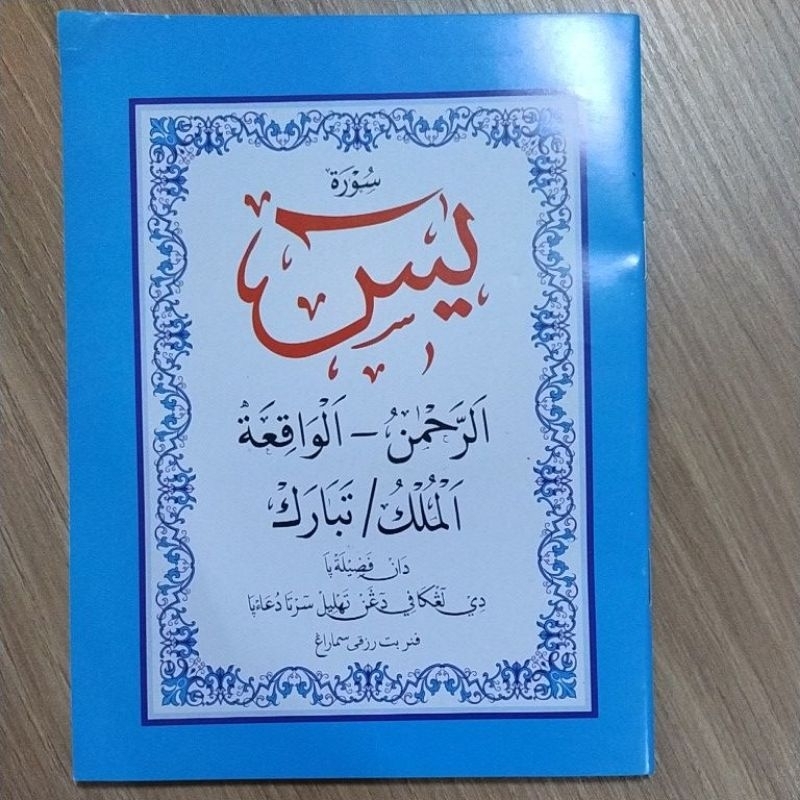 سُوْرَة
يس
اَلرَّحْمٰنُ - اَلْوَاقِعَةُ
اَلْمُلْكُ / تَبَارَكَ
دَانْ فَضِيْلَةْ ڽَا
دِي لَڠْكَافِي دَڠَنْ تَهْلِيْل سَرْتَا دُعَاءْ ڽَا
فنربت رزقى سماراڠ